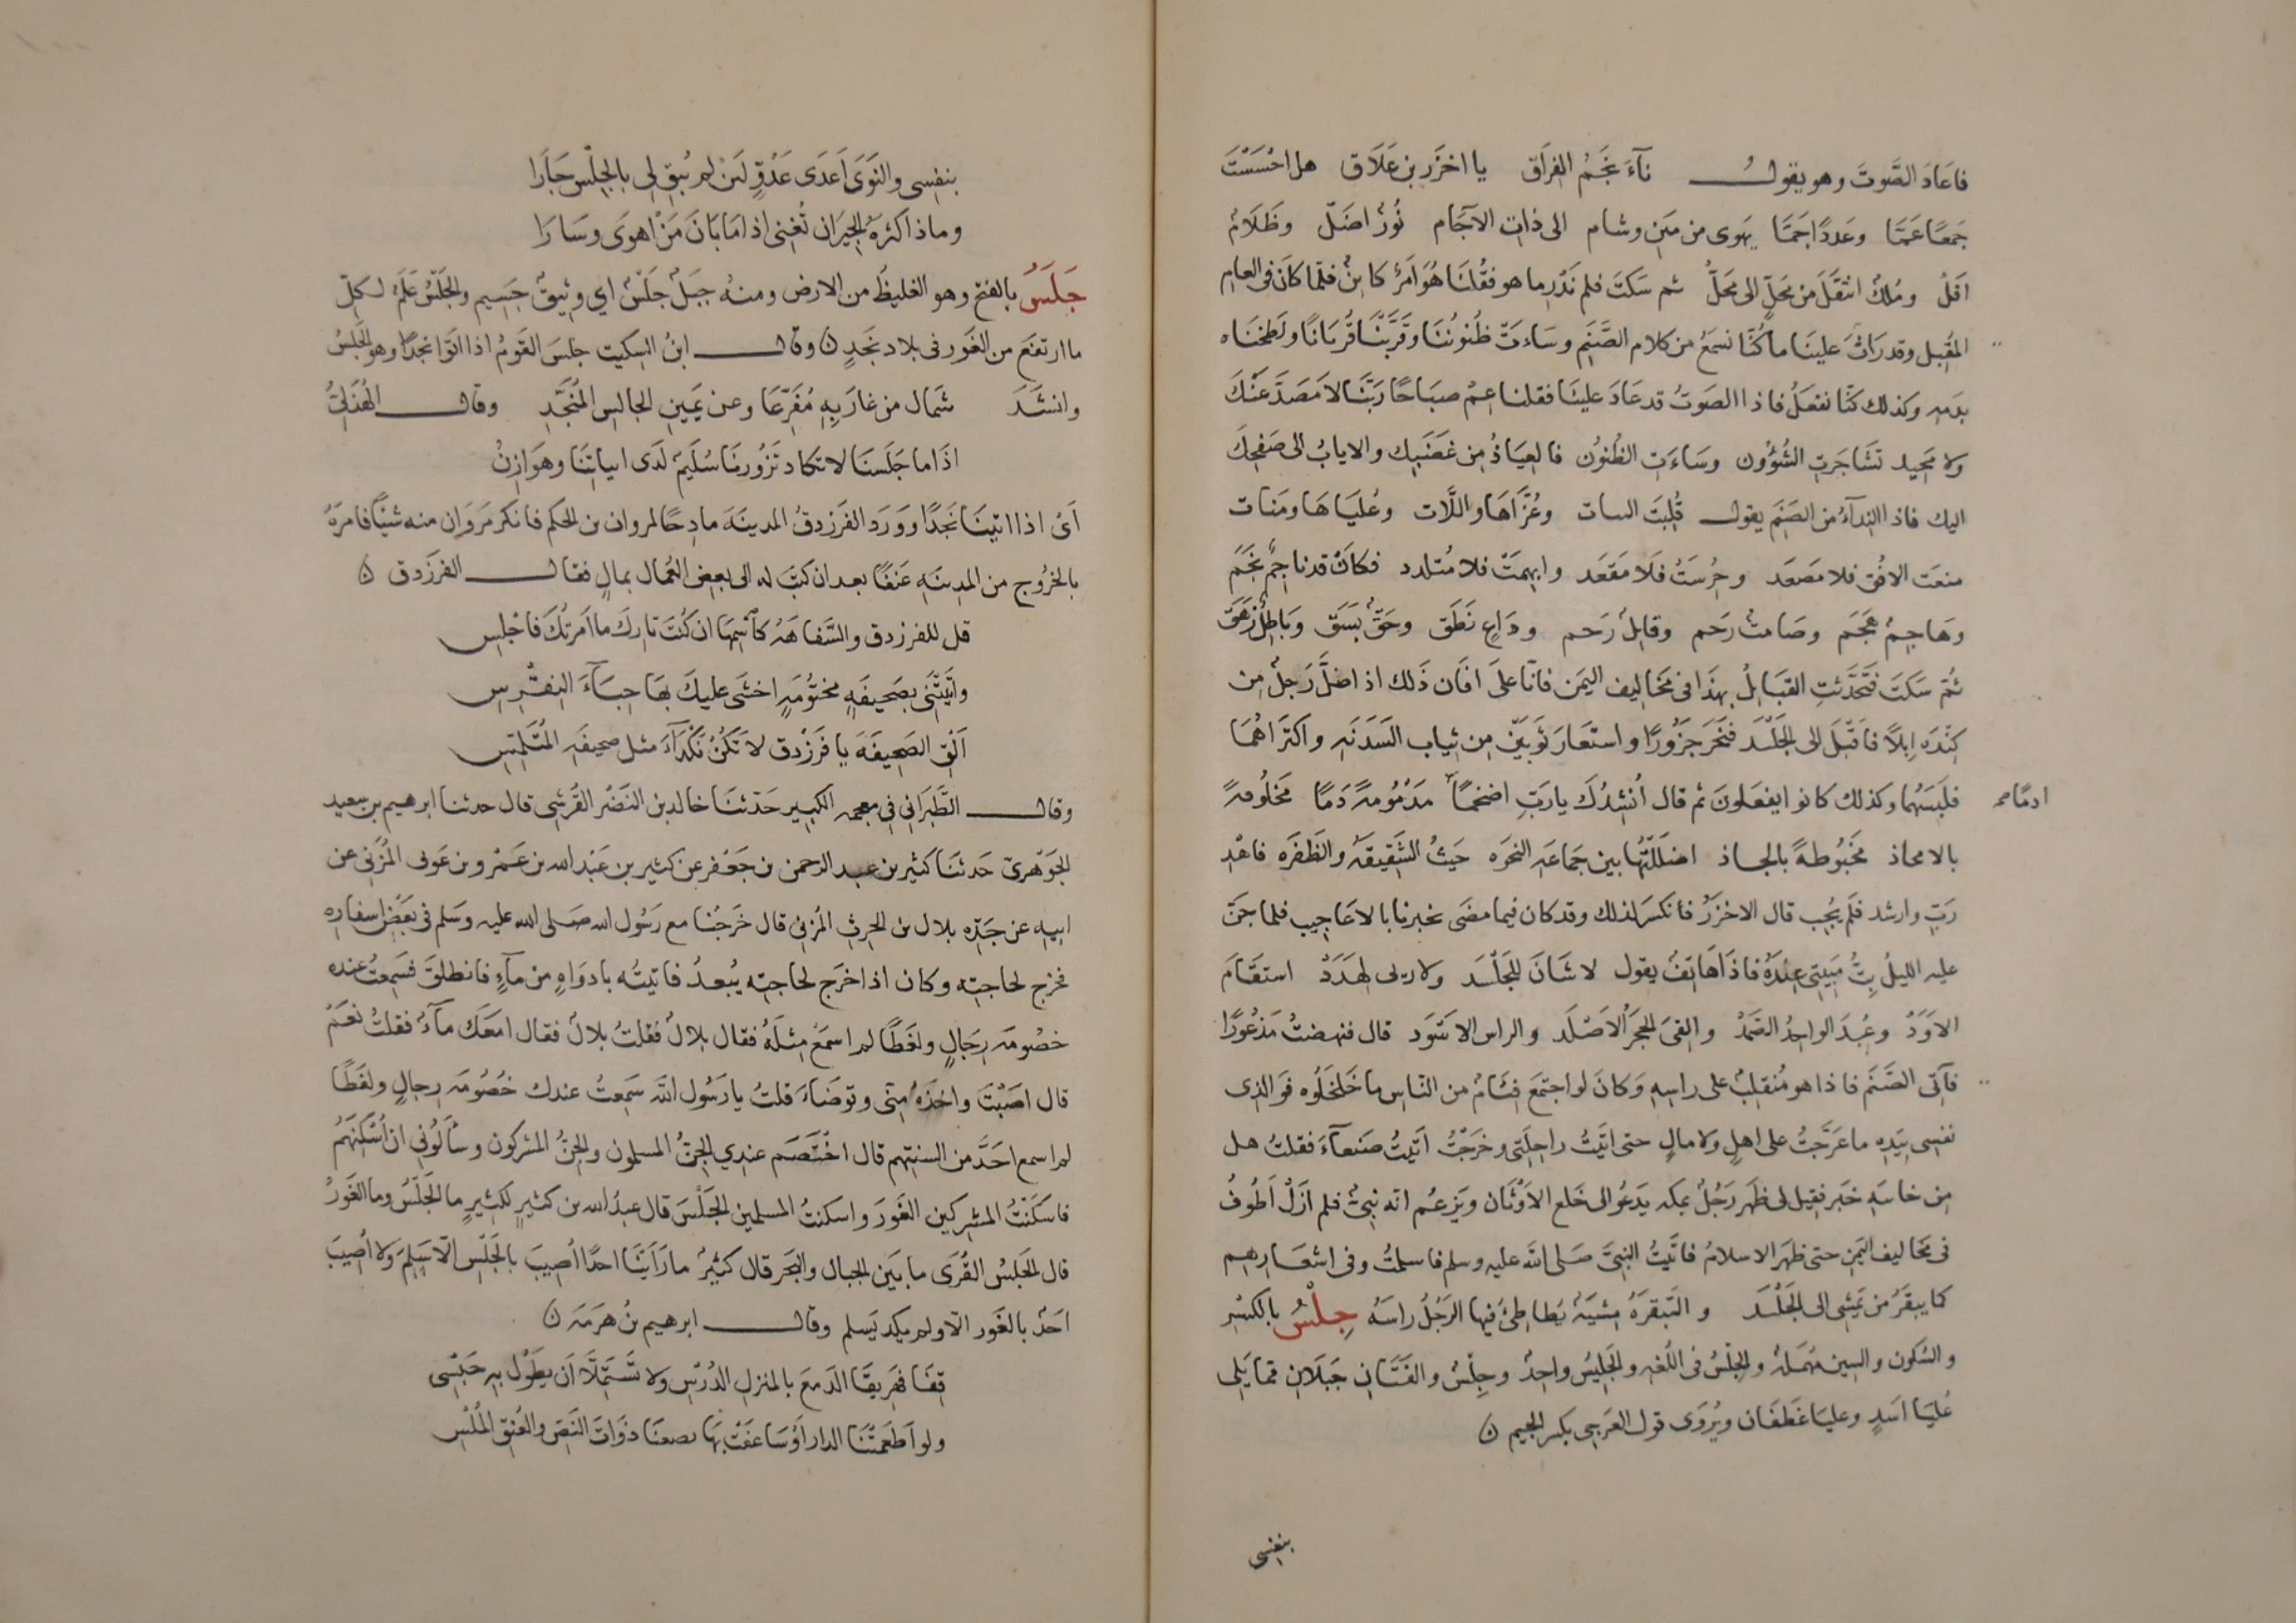 فاعَادَ الصَّوتَ وهو يقول نآءَ نجَمُ الفِرَاق يا اخزَر بن عَلَاق هل احْسَسْتَ
جَمعًا عَمَّا وعَددًا جَمَّا يَهوى من يمَنٍ وشام الى ذات الآجَام نُورٌ اضَلّ وظَلَامٌ
اَفَلْ ومُلكٌ انتقَلَ مَن مَحَلٍّ الى مَحَلٍّ ثم سَكتَ فلم نَدْرِ ما هو فقُلنَا هُوَ اَمرٌ كائِنٌ فلمّا كانَ فى العامِ
المقُبِل وقد رَاثَ علينَا ما كُنَّا نسمَعُ من كلام الصَّنَمِ وسَاءَتّ ظُنونُنَا وقَرَّبْنَا قُربَانًا ولَطخنَاه
بدَمِهِ وكذلك كنَّا نفعَلُ فاذا الصَوتُ قد عَادَ علينَا فقلنا عِمْ صبَاحًا رَبَّنَا لا مَصَدَّ عَنْكَ
ولا مَحِيد تشَاجَرتِ الشُؤُون وسَاءَتِ الظُنونُ فالعِيَاذُ مِن غضَبِك والاياب الى صَفحِكَ
اليك فاذا النِدآءُ من الصَنَم يقول قُلِبَت البنات وعُزَّاهَا واللَّات وعُليَاهَا ومَنات
منعَت الافُق فلا مَصعَد وحُرِسَتْ فَلَا مَقعَد وابهِمَتْ فلا مُتلدد فكان قد ناجِمٌ نجَمَ
وهَاجِمٌ هجَمَ وصَامتٌ رَحَم وقابِلٌ رَحَم ودَاعٍ نَطَق وحَقٌّ بَسَق وبَاطِلٌ زهَقَ
ثُمّ سَكتَ فتَحَدَّثتِ القبَايلُ بهذَا فى مَخَاليف اليمَن فانّا على افَان ذَلك اذ اضلَّ رَجلٌ مِن
كِنْدَه اِبِلاً فاقبَلَ الى الجَلْسَد فنَحَرَ جَزُورًا واستعَار ثَوبَينِ مِن ثِياب السَدَنَهِ واكترَاهُمَا
فلبَسَهُما وكذلك كانوا يفعَلونَ ثم قال اُنشِدُكَ يا رَبّ اضخمًا مَدْمُومةً دَمًا مَخلُوفةً
ادمًا صح
بالامحاذ مخَبُوطةً بالجاذ اضلَلتُها بين جَماعَه النحرَه حَيثُ الشَّقِيقَهُ والظَفرَه فاهْدِ
رَبّ وارشد فلَم يُجِب قال الاخزَرُ فانكسَر لذلك وقد كان فيما مضَى يخبرنا بالاعَاجِيب فلما جنَّ
عليه الليلُ بِتُّ مَبِيتِي عِندَهُ فاذَا هَاتِفٌ يقول لا شَانَ للجَلْسَد ولا رىٔ لهدَدْ استقَامَ
الاوَدْ وعُبِدَ الواحِدُ الصَمَدْ والقىَ الحَجَرُ الاَصْلَد والراس الاسَود قال فنهضتُ مَذعُورًا
فآتى الصَّنمَ فاذا هو مُنقلِبٌ على راسِهِ وَكانَ لو اجتمَعَ فئَامٌ من النّاسِ ما خَلخَلُوه فوَالذى
نفسى بيَدِه ما عَرَّجتُ على اهلٍ ولا مالٍ حتى اتَيتُ راحِلَتِى وخرَجتُ اتَيتُ صَنعآءَ فقلتُ هل
مِن خاسَةِ خبَر فقيل لى ظَهر رَجُلٌ بمكه يَدعُو الى خَلع الاَوْثَان وَيزعُم انّه نبىٌّ فلم ازَلْ اَطُوفُ
فى مخَاليف اليمَنِ حتى ظهَر الاسلامُ فاتَيتُ النبىَّ صَلى الله عليه وسلم فاسلمتُ وفى اشعَارِهم
كما يبقَرُ من يمَشِى الى الجَلْسَد والبَقرَهُ مِشيَةٌ يُطاطِئُ فيها الرَجُلُ راسَهُ جِلْسُ بالكسْرِ
والسُكون والسِين مُهمَلهُ والجِلْسُ فى اللُغهِ والجَليسُ واحِدٌ وجِلْسُ والقَنَان جَبَلانِ مّما يَلِى
عُليَا اسَدٍ وعليَا غَطَفَان ويُروَى قول العَرجى بكسر الجيم ن
بنفسى
بنفسِى والنَوَى اَعدَى عَدُوٍّ لَئنْ لم يُبق لى بالجِلْسِ جَارَا
وماذا كثرَهُ الجِيرَانِ تُغنِى اذا مَا بَانَ مَنْ اهوَى وسَارَا
جَلَسُ بالفتح وهو الغليظُ من الارض ومنهُ جبَلٌ جَلْسٌ اي وثِيقٌ جَسِيم والجَلْسُ عَلَمٌ لكلّ
ما ارتفَع من الغَور فى بلاد نجَدٍ ن وقال ابنُ السِكيت جلسَ القَومُ اذا اتَوا نجدًا وهو الجَلسُ
وانشَدَ شمَال من غارَ بِهِ مُفَرِّعًا وعن يمَينِ الجالسِ المُنجِّدِ وقال الهُذَلِىُّ
اذَا ما جَلَسنَا لا تكاد تَزُورنَا سُلَيمٌ لدَى ابياتِنَا وهوَازِنُ
اَىْ اذا اتينَا نَجَدًا ووَرَد الفَرَزدقُ المدينَهَ مادِحًا لمروان بن الحكم فانكر مَروَان منه شيئًا فامَرَهُ
بالخرُوج من المدِينَهِ عَنفًا بعد ان كتَبَ له الى بعض العُمال بمالٍ فقال الفرَزدق ن
قل للفرزدق والسَّفاهَهُ كاسْمِها ان كنتَ تارِكَ ما اَمرتُكَ فاجْلِسِ
واَتَيتَنَى بصَحيفَهٍ مختُومَهٍ اخشَى عليكَ بهَا حِبَآءَ النِقْرِسِ
اَلْقِ الصَحِيفَهَ يا فرَزْدق لا تَكُنْ نَكْدَآءَ مثل صحيفَهِ المُتَلَمِّسِ
وقال الطَّبرَانى فِى معجمه الكبِير حَدَّثنَا خالد بن النَضْر القُرَشِى قال حدثنا ابرهيم بن سعيد
الجوَهرىّ حَدثنَا كثير بن عبد الرحمن بن جعَفرٍ عن كثير بن عَبْد الله بن عَمْرو بن عَوف المُزَنِى عن
ابيِهِ عن جَدِّه بلال بن الحرثِ المُزنِى قال خَرجُنا مع رَسُول الله صَلى الله عليه وسَلم فى بعَضِ اسفارِه
فخرج لحاجتِه وكان اذا خرَج لحاجتِه يُبعدُ فاتيتُه بادوَاهٍ من مآءٍ فانطلقَ فسَمِعتُ عندَه
خصُومَه رِجَالٍ ولغَطًا لم اسمَعْ مِثلَهُ فقال بلالٌ فقُلتُ بلالٌ فقال امعَكَ مآءٌ فقلتُ نعَمْ
قال اصَبْتَ واخذَهُ مِنّى وتوضَاءَ قلتُ يا رَسُول الله سَمِعتُ عندك خُصُومَه رِجالٍ ولغَطًا
لم اسمع احَدَّ من السِنتِهم قال اختَصَم عندِي الجِنُّ المسلمون والجِنُّ المشركون وسَألُونِى ان اُسْكِنَهُمْ
فاسكَنتُ المشركين الغَورَ واسكنتُ المسلمين الجَلْسَ قال عبدُ الله بن كثيرٍ لكثِيرٍ ما الجَلْسُ وما الغَورُ
قال الجَلسُ القُرَى ما بَين الجبال والبَحر قال كثيرٌ ما رَاَيْنَا احدًا اُصِيبَ بالجَلْسِ الّا سَلِمَ ولا اُصِيبَ
احَدٌ بالغَور الّا ولم يكد يَسلم وقال ابرهيم بنُ هَرمَهَ ن
قِفَا فهَرِيقَا الدَمعَ بالمنزلِ الدَّرْسِ ولا تَستَمِلَّا اَن يطَوُل بِهِ حَبْسِى
ولو اَطعمَتْنَا الدار اَوْ سَاعفَتْ بهَا نصصنَا ذوَات النَصّ والعُنق المُلْسِ